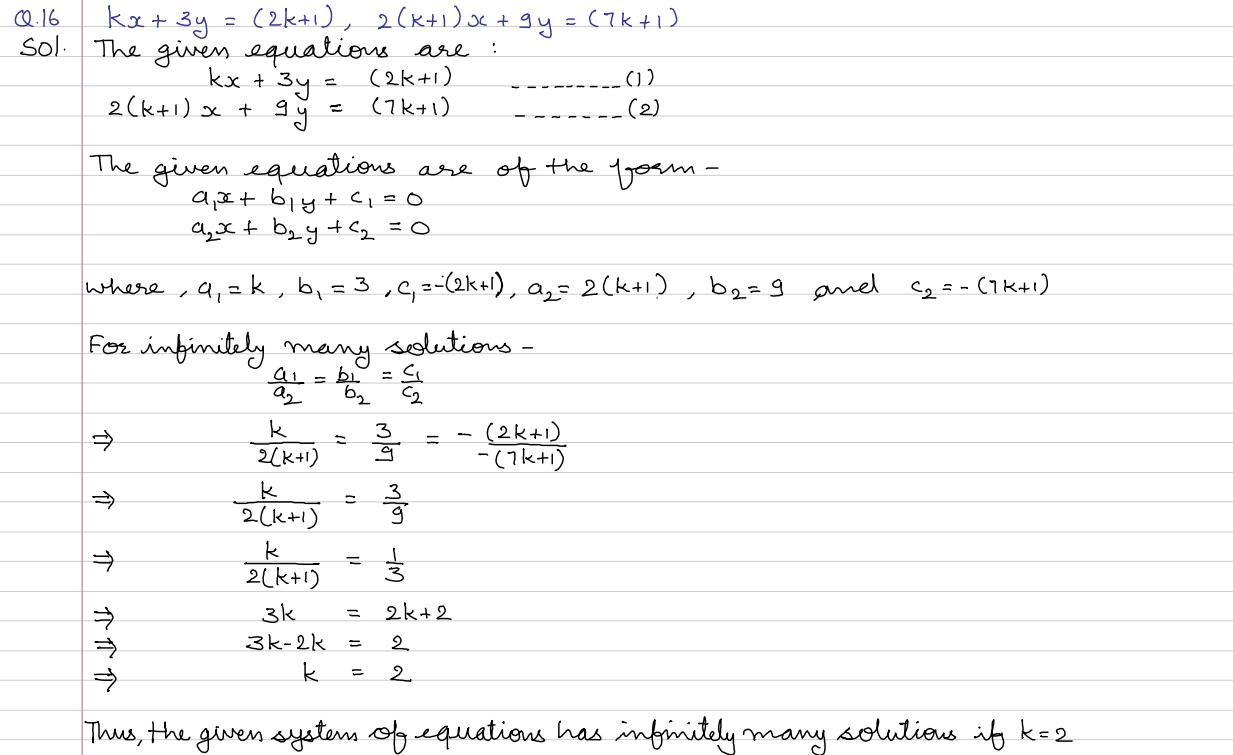 Q.16 kx + 3y = (2k+1), 2(k+1)x + 9y = (7k+1)
Sol. The given equations are :
kx + 3y = (2k+1) ---------(1)
2(k+1)x + 9y = (7k+1) -------(2)
The given equations are of the form -
a₁x + b₁y + c₁ = 0
a₂x + b₂y + c₂ = 0
where, a₁ = k, b₁ = 3, c₁ = -(2k+1), a₂ = 2(k+1), b₂ = 9 and c₂ = -(7k+1)
For infinitely many solutions -
a₁/a₂ = b₁/b₂ = c₁/c₂
⇒ k/2(k+1) = 3/9 = -(2k+1)/-(7k+1)
⇒ k/2(k+1) = 3/9
⇒ k/2(k+1) = 1/3
⇒ 3k = 2k+2
⇒ 3k-2k = 2
⇒ k = 2
Thus, the given system of equations has infinitely many solutions if k=2